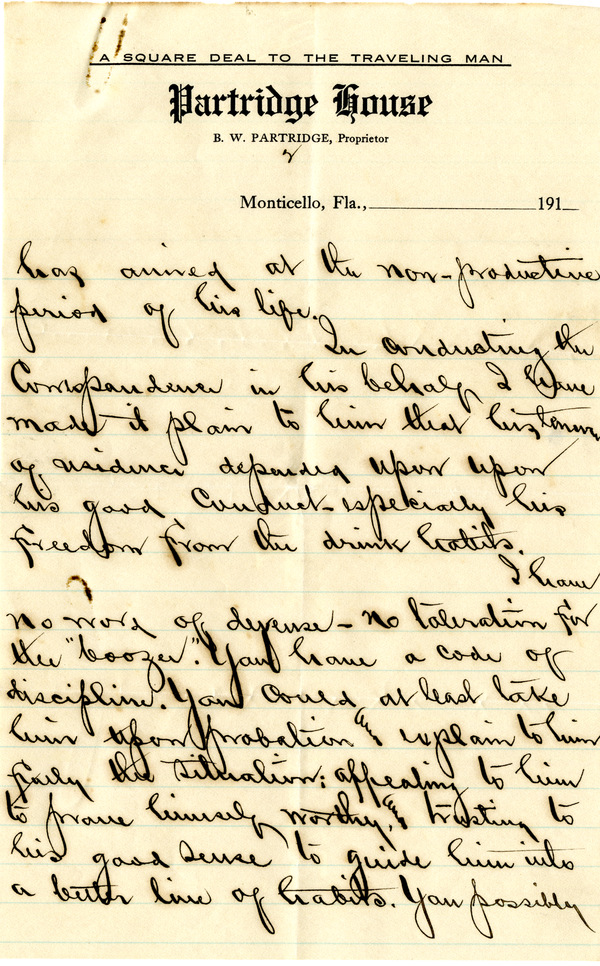 A SQUARE DEAL TO THE TRAVELING MAN
Partridge House
B. W. PARTRIDGE, Proprietor
Monticello, Fla., 191
has arrived at the non-productive
period of his life.
In conducting the
Correspondence in his behalf, I have
made it plain to him that his tenure
of residence depended upon upon
his good conduct - especially his
freedom from the drink habits.
I have
no word of defense - no toleration for
the "boozer". You have a code of
discipline. You could, at least take
him upon probation & explain to him
fully the situation; appealing to him
to prove himself worthy, & trusting to
his good sense to guide him into
a better line of habits. You possibly